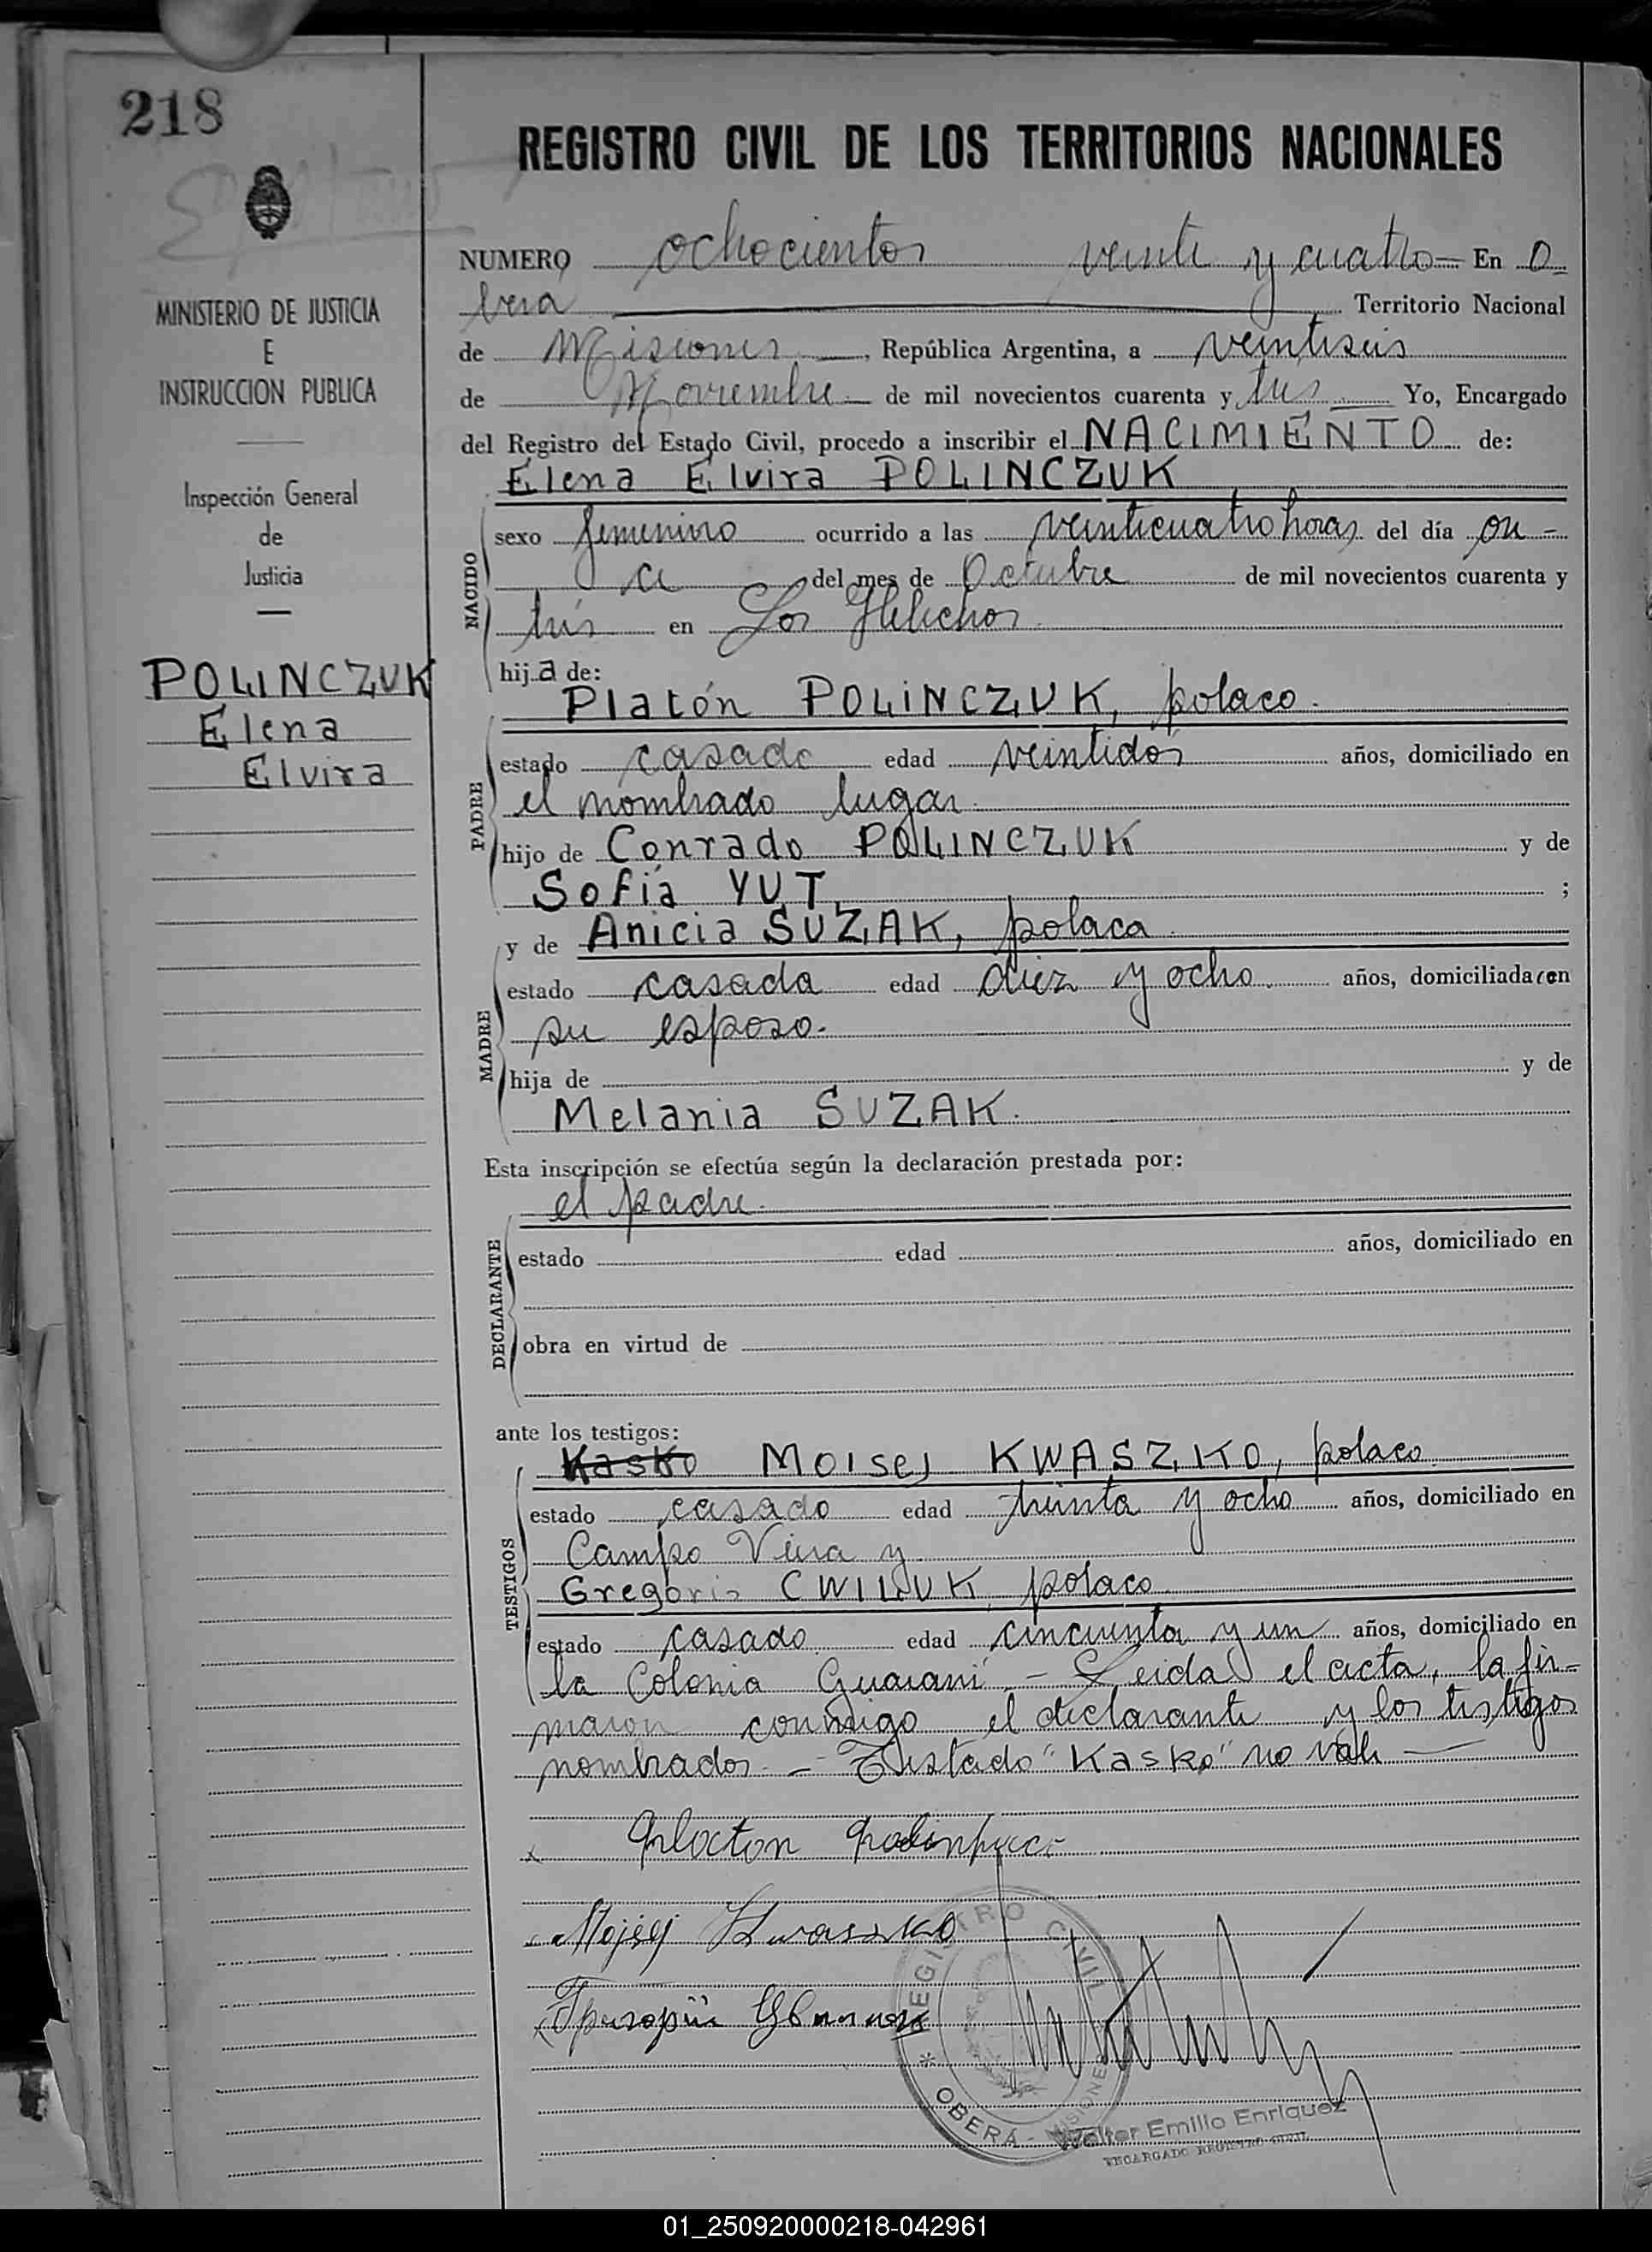 218
REGISTRO CIVIL DE LOS TERRITORIOS NACIONALES
NUMERO ochocientos veinte y cuatro — En O-
berá Territorio Nacional
de Misiones, República Argentina, a veintiseis
de Noviembre de mil novecientos cuarenta y tres Yo, Encargado
del Registro del Estado Civil, procedo a inscribir el NACIMIENTO de:
Elena Elvira POLINCZUK
MINISTERIO DE JUSTICIA
E
INSTRUCCION PUBLICA
Inspección General
de
Justicia
POLINCZUK
Elena
Elvira
NACIDO
sexo femenino ocurrido a las veinticuatro horas del día on-
ce del mes de Octubre de mil novecientos cuarenta y
trés en Los Helechos
hija de:
Platón POLINCZUK, polaco.
PADRE
estado casado edad veintidos años, domiciliado en
el nombrado lugar
hijo de Conrado POLINCZUK y de
Sofía YUT ;
y de Anicia SUZAK, polaca
MADRE
estado casada edad diez y ocho años, domiciliada con
su esposo.
hija de y de
Melania SUZAK.
Esta inscripción se efectúa según la declaración prestada por:
el padre.
DECLARANTE
estado edad años, domiciliado en
obra en virtud de
ante los testigos:
Kasko Moises KWASZKO, polaco
TESTIGOS
estado casado edad treinta y ocho años, domiciliado en
Campo Viera y
Gregorio CWILUK, polaco
estado casado edad cincuenta y un años, domiciliado en
la Colonia Guaraní - Leida el acta, la fir-
maron conmigo el declarante y los testigos
nombrados. - Testado "Kasko" no vale —
x Platon
Mojsej Kwaszko
REGISTRO CIVIL
* OBERÁ - MISIONES
Walter Emilio Enriquez
ENCARGADO REGISTRO CIVIL
01_250920000218-042961